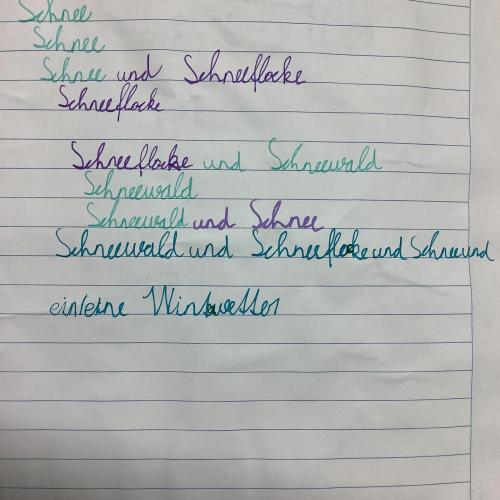 Schnee
Schnee
Schnee und Schneeflocke
Schneeflocke
Schneeflocke und Schneewald
Schneewald
Schneewald und Schnee
Schneewald und Schneeflocke und Schnee und
ein/eine